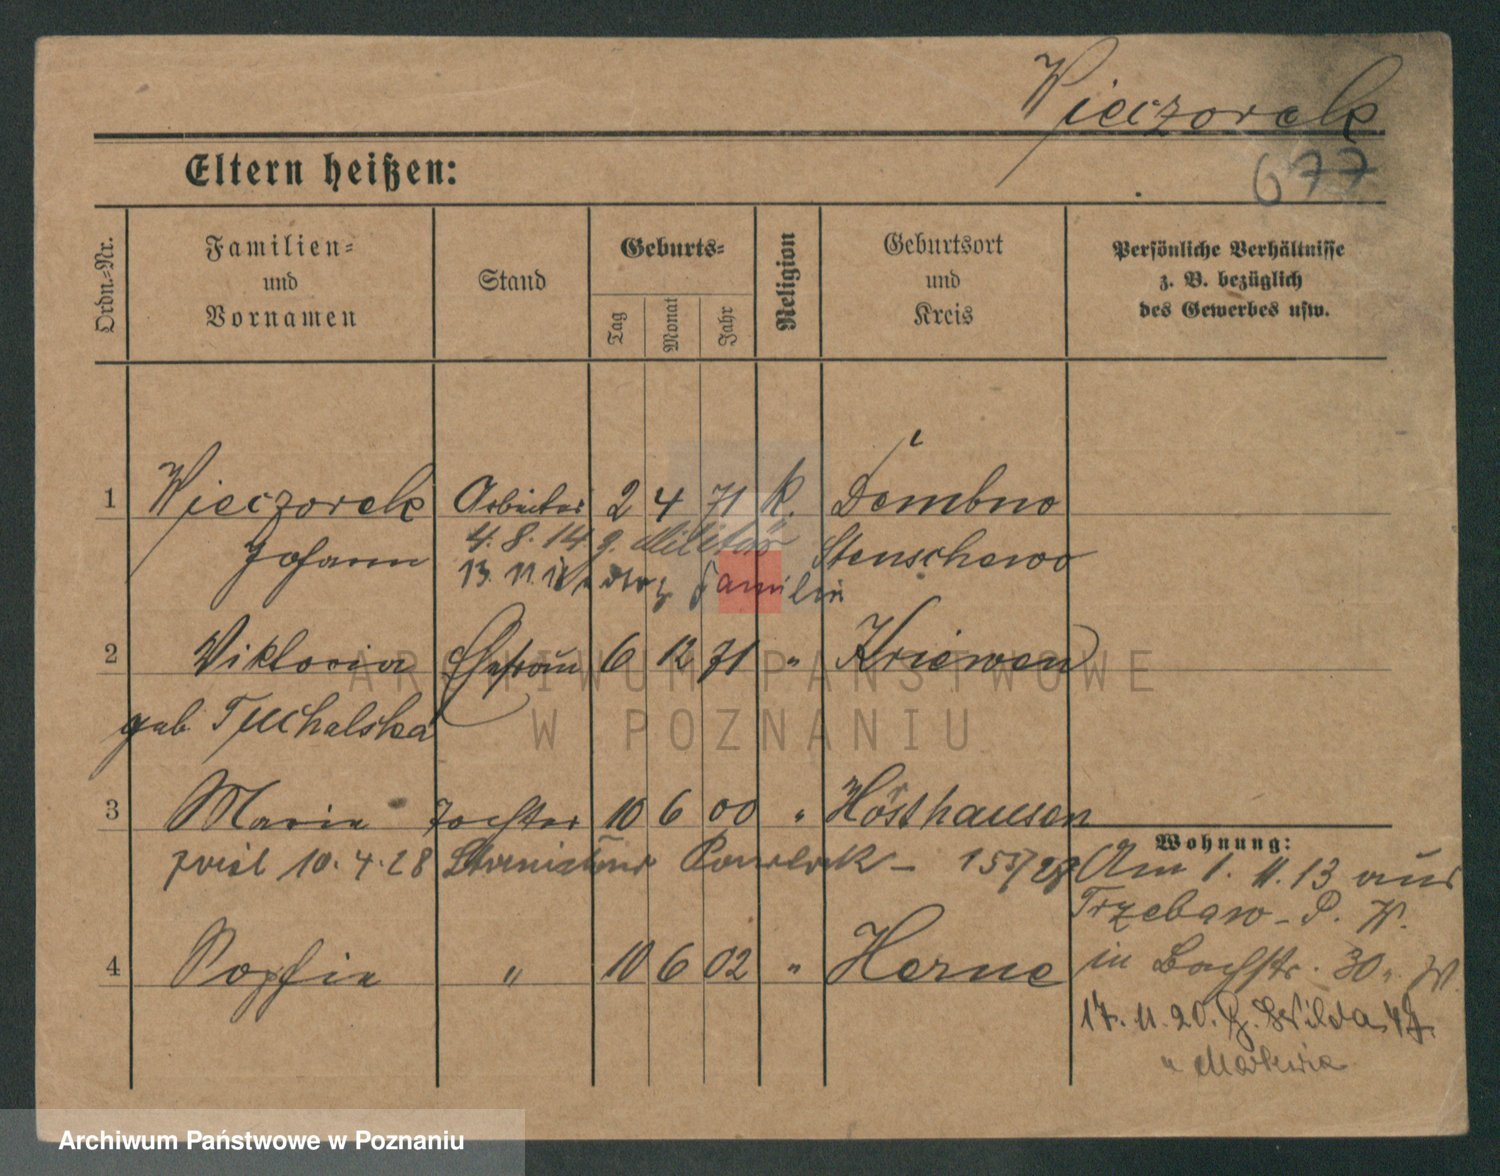 Wieczorek
677
Eltern heißen:
Ordn.-Nr.
Familien-
und
Vornamen
Stand
Geburts-
Tag
Monat
Jahr
Religion
Geburtsort
und
Kreis
Persönliche Verhältnisse
z. B. bezüglich
des Gewerbes usw.
1 Wieczorek Arbeiter 2 4 71 K. Dembno
Johann 4. 8. 14 z. Militär Stenschewo
13. 11. Familie
2 Viktoria Ehefrau 6 12 71 " Kriewen
geb. Tuchalska
ARCHIWUM PAŃSTWOWE
W POZNANIU
3 Maria Tochter 10 6 00 " Hösthausen
10. 4. 28 155/28
4 Sophie " 10 6 02 " Herne
Wohnung:
Am 1. 11. 13 aus
Trzebaw - P. W.
in Bachstr. 30
17. 11. 20. G. Wilda
Archiwum Państwowe w Poznaniu